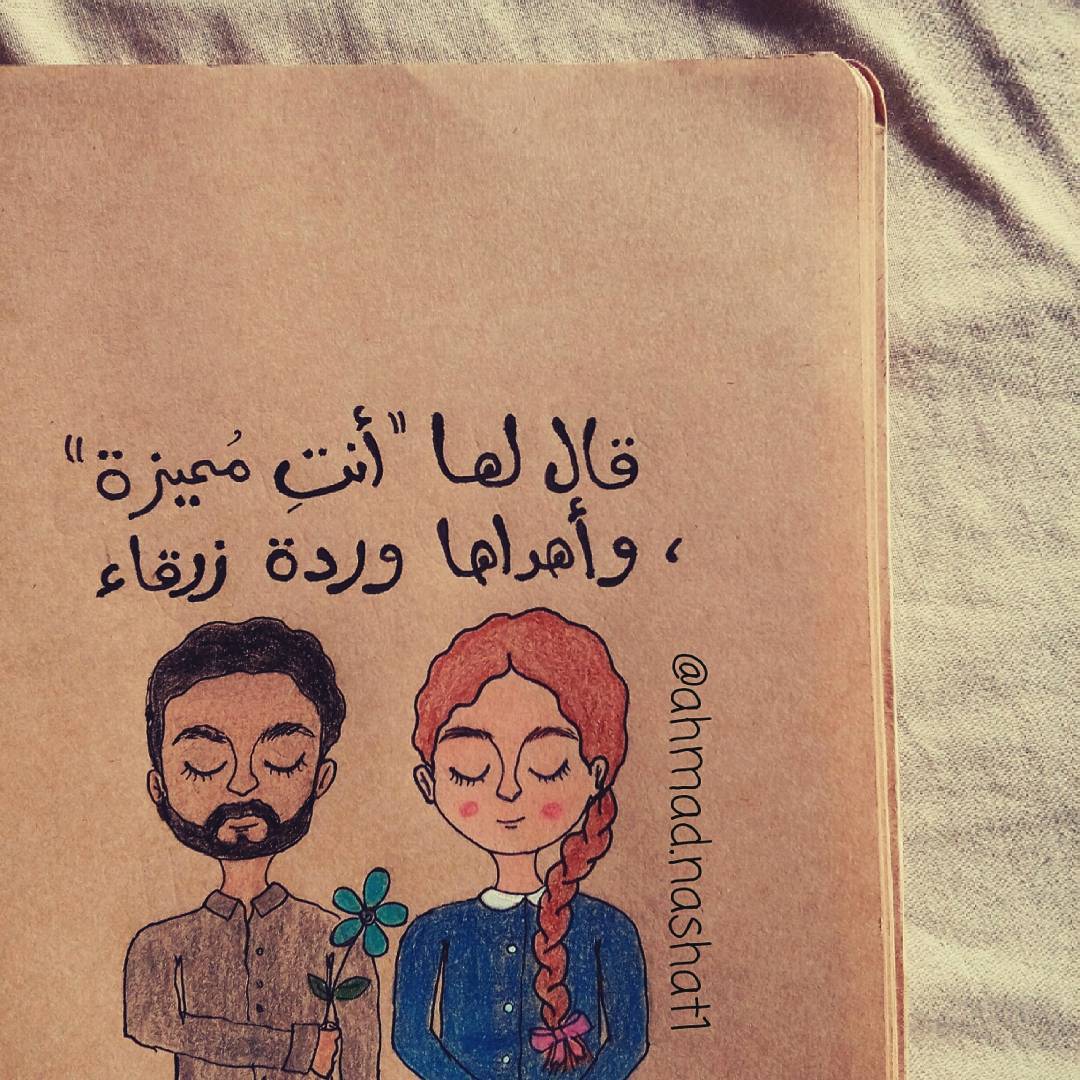 قال لها "أنتِ مُميزة"
، وأهداها وردة زرقاء
@ahmad.nashat1